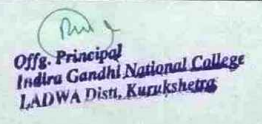 Offg. Principal
Indira Gandhi National College
LADWA Distt, Kurukshetra